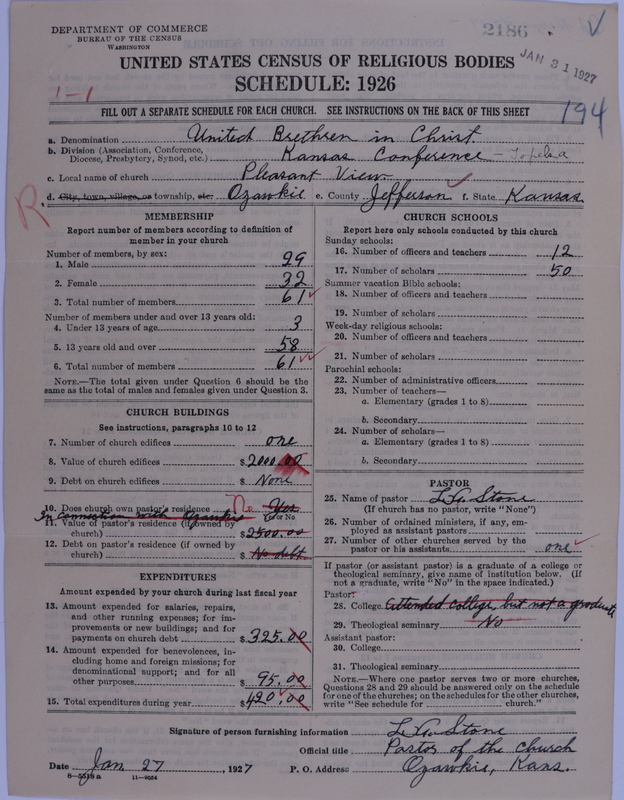 DEPARTMENT OF COMMERCE
BUREAU OF THE CENSUS
WASHINGTON
2186
JAN 31 1927
UNITED STATES CENSUS OF RELIGIOUS BODIES
SCHEDULE: 1926
1-1
194
FILL OUT A SEPARATE SCHEDULE FOR EACH CHURCH. SEE INSTRUCTIONS ON THE BACK OF THIS SHEET
a. Denomination United Brethren in Christ
b. Division (Association, Conference, Diocese, Presbytery, Synod, etc.) Kansas Conference - Topeka
c. Local name of church Pleasant View
d. City, town, village, or township, etc. Ozawkie e. County Jefferson f. State Kansas
R
MEMBERSHIP
Report number of members according to definition of
member in your church
Number of members, by sex:
1. Male 29
2. Female 32
3. Total number of members 61
Number of members under and over 13 years old:
4. Under 13 years of age 3
5. 13 years old and over 58
6. Total number of members 61
NOTE.—The total given under Question 6 should be the
same as the total of males and females given under Question 3.
CHURCH BUILDINGS
See instructions, paragraphs 10 to 12
7. Number of church edifices one
8. Value of church edifices $2000.00
9. Debt on church edifices $None
10. Does church own pastor's residence No Yes
(Yes or No)
In connection with Ozawkie
11. Value of pastor's residence (if owned by
church) $2500.00
12. Debt on pastor's residence (if owned by
church) $No debt
EXPENDITURES
Amount expended by your church during last fiscal year
13. Amount expended for salaries, repairs,
and other running expenses; for im-
provements or new buildings; and for
payments on church debt $325.00
14. Amount expended for benevolences, in-
cluding home and foreign missions; for
denominational support; and for all
other purposes $95.00
15. Total expenditures during year $420.00
CHURCH SCHOOLS
Report here only schools conducted by this church
Sunday schools:
16. Number of officers and teachers 12
17. Number of scholars 50
Summer vacation Bible schools:
18. Number of officers and teachers
19. Number of scholars
Week-day religious schools:
20. Number of officers and teachers
21. Number of scholars
Parochial schools:
22. Number of administrative officers
23. Number of teachers—
a. Elementary (grades 1 to 8)
b. Secondary
24. Number of scholars—
a. Elementary (grades 1 to 8)
b. Secondary
PASTOR
25. Name of pastor L. A. Stone
(If church has no pastor, write "None")
26. Number of ordained ministers, if any, em-
ployed as assistant pastors
27. Number of other churches served by the
pastor or his assistants one
If pastor (or assistant pastor) is a graduate of a college or
theological seminary, give name of institution below. (If
not a graduate, write "No" in the space indicated.)
Pastor:
28. College attended College, but not a graduate
29. Theological seminary No
Assistant pastor:
30. College
31. Theological seminary
NOTE.—Where one pastor serves two or more churches,
Questions 28 and 29 should be answered only on the schedule
for one of the churches; on the schedules for the other churches,
write "See schedule for church."
Signature of person furnishing information L. A. Stone
Official title Pastor of the Church
Date Jan 27, 1927 P. O. Address Ozawkie, Kans.
8-5518a 11-9084